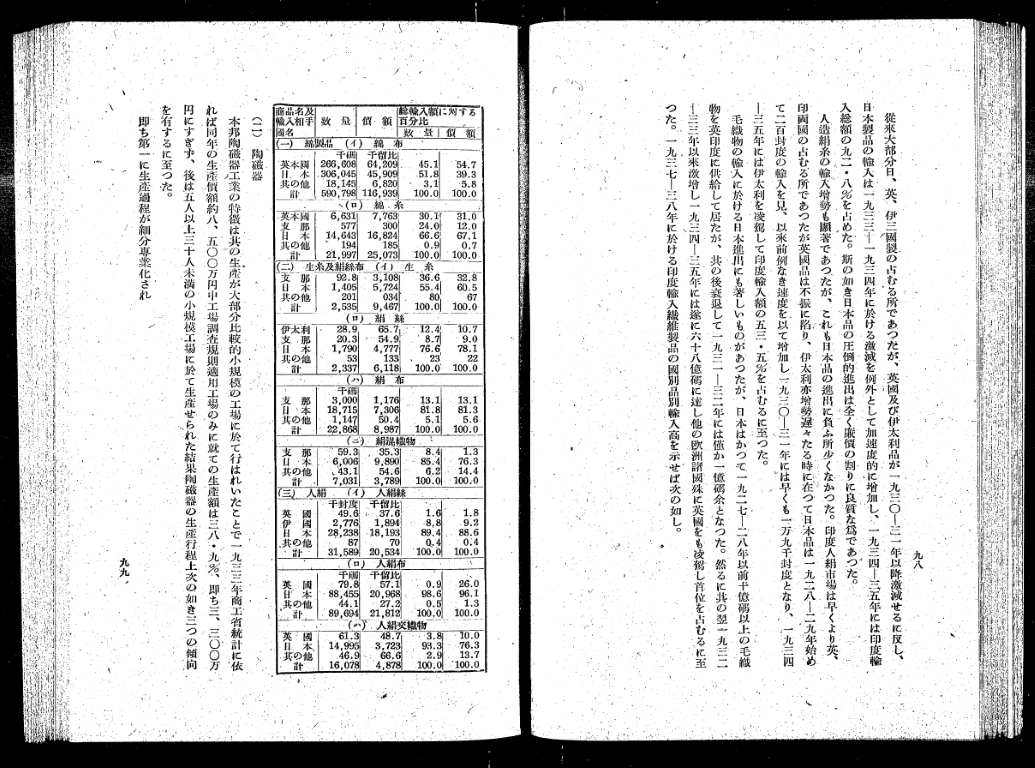 九八
從來大部分日、英、伊三國製の占むる所であつたが、英國及び伊太利品が一九三〇―三一年以降激減せるに反し、
日本製品の輸入は一九三三―一九三四年に於ける激減を例外として加速度的に增加し、一九三四―三五年には印度輸
入總額の九二・八%を占めた。斯の如き日本品の圧倒的進出は全く廉價の割りに良質な爲であつた。
人造絹糸の輸入增勢も顯著であつたが、これも日本品の進出に負ふ所少くなかつた。印度人絹市場は早くより英、
印兩國の占むる所であつたが英國品は不振に陷り、伊太利亦增勢遲々たる時に在つて日本品は一九二八―二九年始め
て二百封度の輸入を見、以來前例なき速度を以て增加し一九三〇―三一年には早くも一万九千封度となり、一九三四
―三五年には伊太利を凌駕して印度輸入額の五三・五%を占むるに至つた。
毛織物の輸入に於ける日本進出にも著しいものがあつたが、日本はかつて一九二七―二八年以前十億碼以上の毛織
物を英印度に供給して居たが、其の後衰退して一九三一―三二年には僅か一億碼余となつた。然るに其の翌一九三二
―三三年以來激增し一九三四―三五年には遂に六十八億碼に達し他の欧洲諸國殊に英國をも凌駕し首位を占むるに至
つた。一九三七―三八年に於ける印度輸入纖維製品の國別品別輸入高を示せば次の如し。
商品名及輸入相手國名 數量 價額 總輸入額に對する百分比
數量 價額
(一) 綿製品 (イ) 綿布
千碼 千留比
英本國 266,608 64,209 45.1 54.7
日本 306,045 45,909 51.8 39.3
其の他 18,145 6,820 3.1 5.8
計 590,798 116,939 100.0 100.0
(ロ) 綿糸
英本國 6,631 7,763 30.1 31.0
支那 577 300 24.0 12.0
日本 14,643 16,824 66.6 67.1
其の他 194 185 0.9 0.7
計 21,997 25,073 100.0 100.0
(二) 生糸及絹絲布 (イ) 生糸
支那 92.8 3,108 36.6 32.8
日本 1,405 5,724 55.4 60.5
其の他 201 034 80 67
計 2,535 9,467 100.0 100.0
(ロ) 絹絲
伊太利 28.9 65.7 12.4 10.7
支那 20.3 54.9 8.7 9.0
日本 1,790 4,777 76.6 78.1
其の他 53 133 23 22
計 2,337 6,118 100.0 100.0
(ハ) 絹布
千碼
支那 3,000 1,176 13.1 13.1
日本 18,715 7,306 81.8 81.3
其の他 1,147 50.4 5.1 5.6
計 22,868 8,987 100.0 100.0
(ニ) 絹混織物
支那 59.3 35.3 8.4 1.3
日本 6,006 9,890 85.4 76.3
其の他 43.1 54.6 6.2 14.4
計 7,031 3,789 100.0 100.0
(三) 人絹 (イ) 人絹絲
千封度 千留比
英國 49.6 37.6 1.6 1.8
伊國 2,776 1,894 8.8 9.2
日本 28,238 18,193 89.4 88.6
其の他 87 70 0.4 0.4
計 31,589 20,534 100.0 100.0
(ロ) 人絹布
千碼 千留比
英國 79.8 57.1 0.9 26.0
日本 88,455 20,968 98.6 96.1
其の他 44.1 27.2 0.5 1.3
計 89,694 21,812 100.0 100.0
(ハ) 人絹交織物
英國 61.3 48.7 3.8 10.0
日本 14,995 3,723 93.3 76.3
其の他 46.9 66.6 2.9 13.7
計 16,078 4,878 100.0 100.0
(二) 陶磁器
本邦陶磁器工業の特徵は其の生産が大部分比較的小規模の工場に於て行はれいたことで一九三三年商工省統計に依
れば同年の生産價額約八、五〇〇万円中工場調査規則適用工場のみに就ての生産額は三八・九%、即ち三、三〇〇万
円にすぎず、後は五人以上三十人未滿の小規模工場に於て生産せられた結果陶磁器の生産行程上次の如き三つの傾向
を有するに至つた。
即ち第一に生産過程が細分專業化され
九九